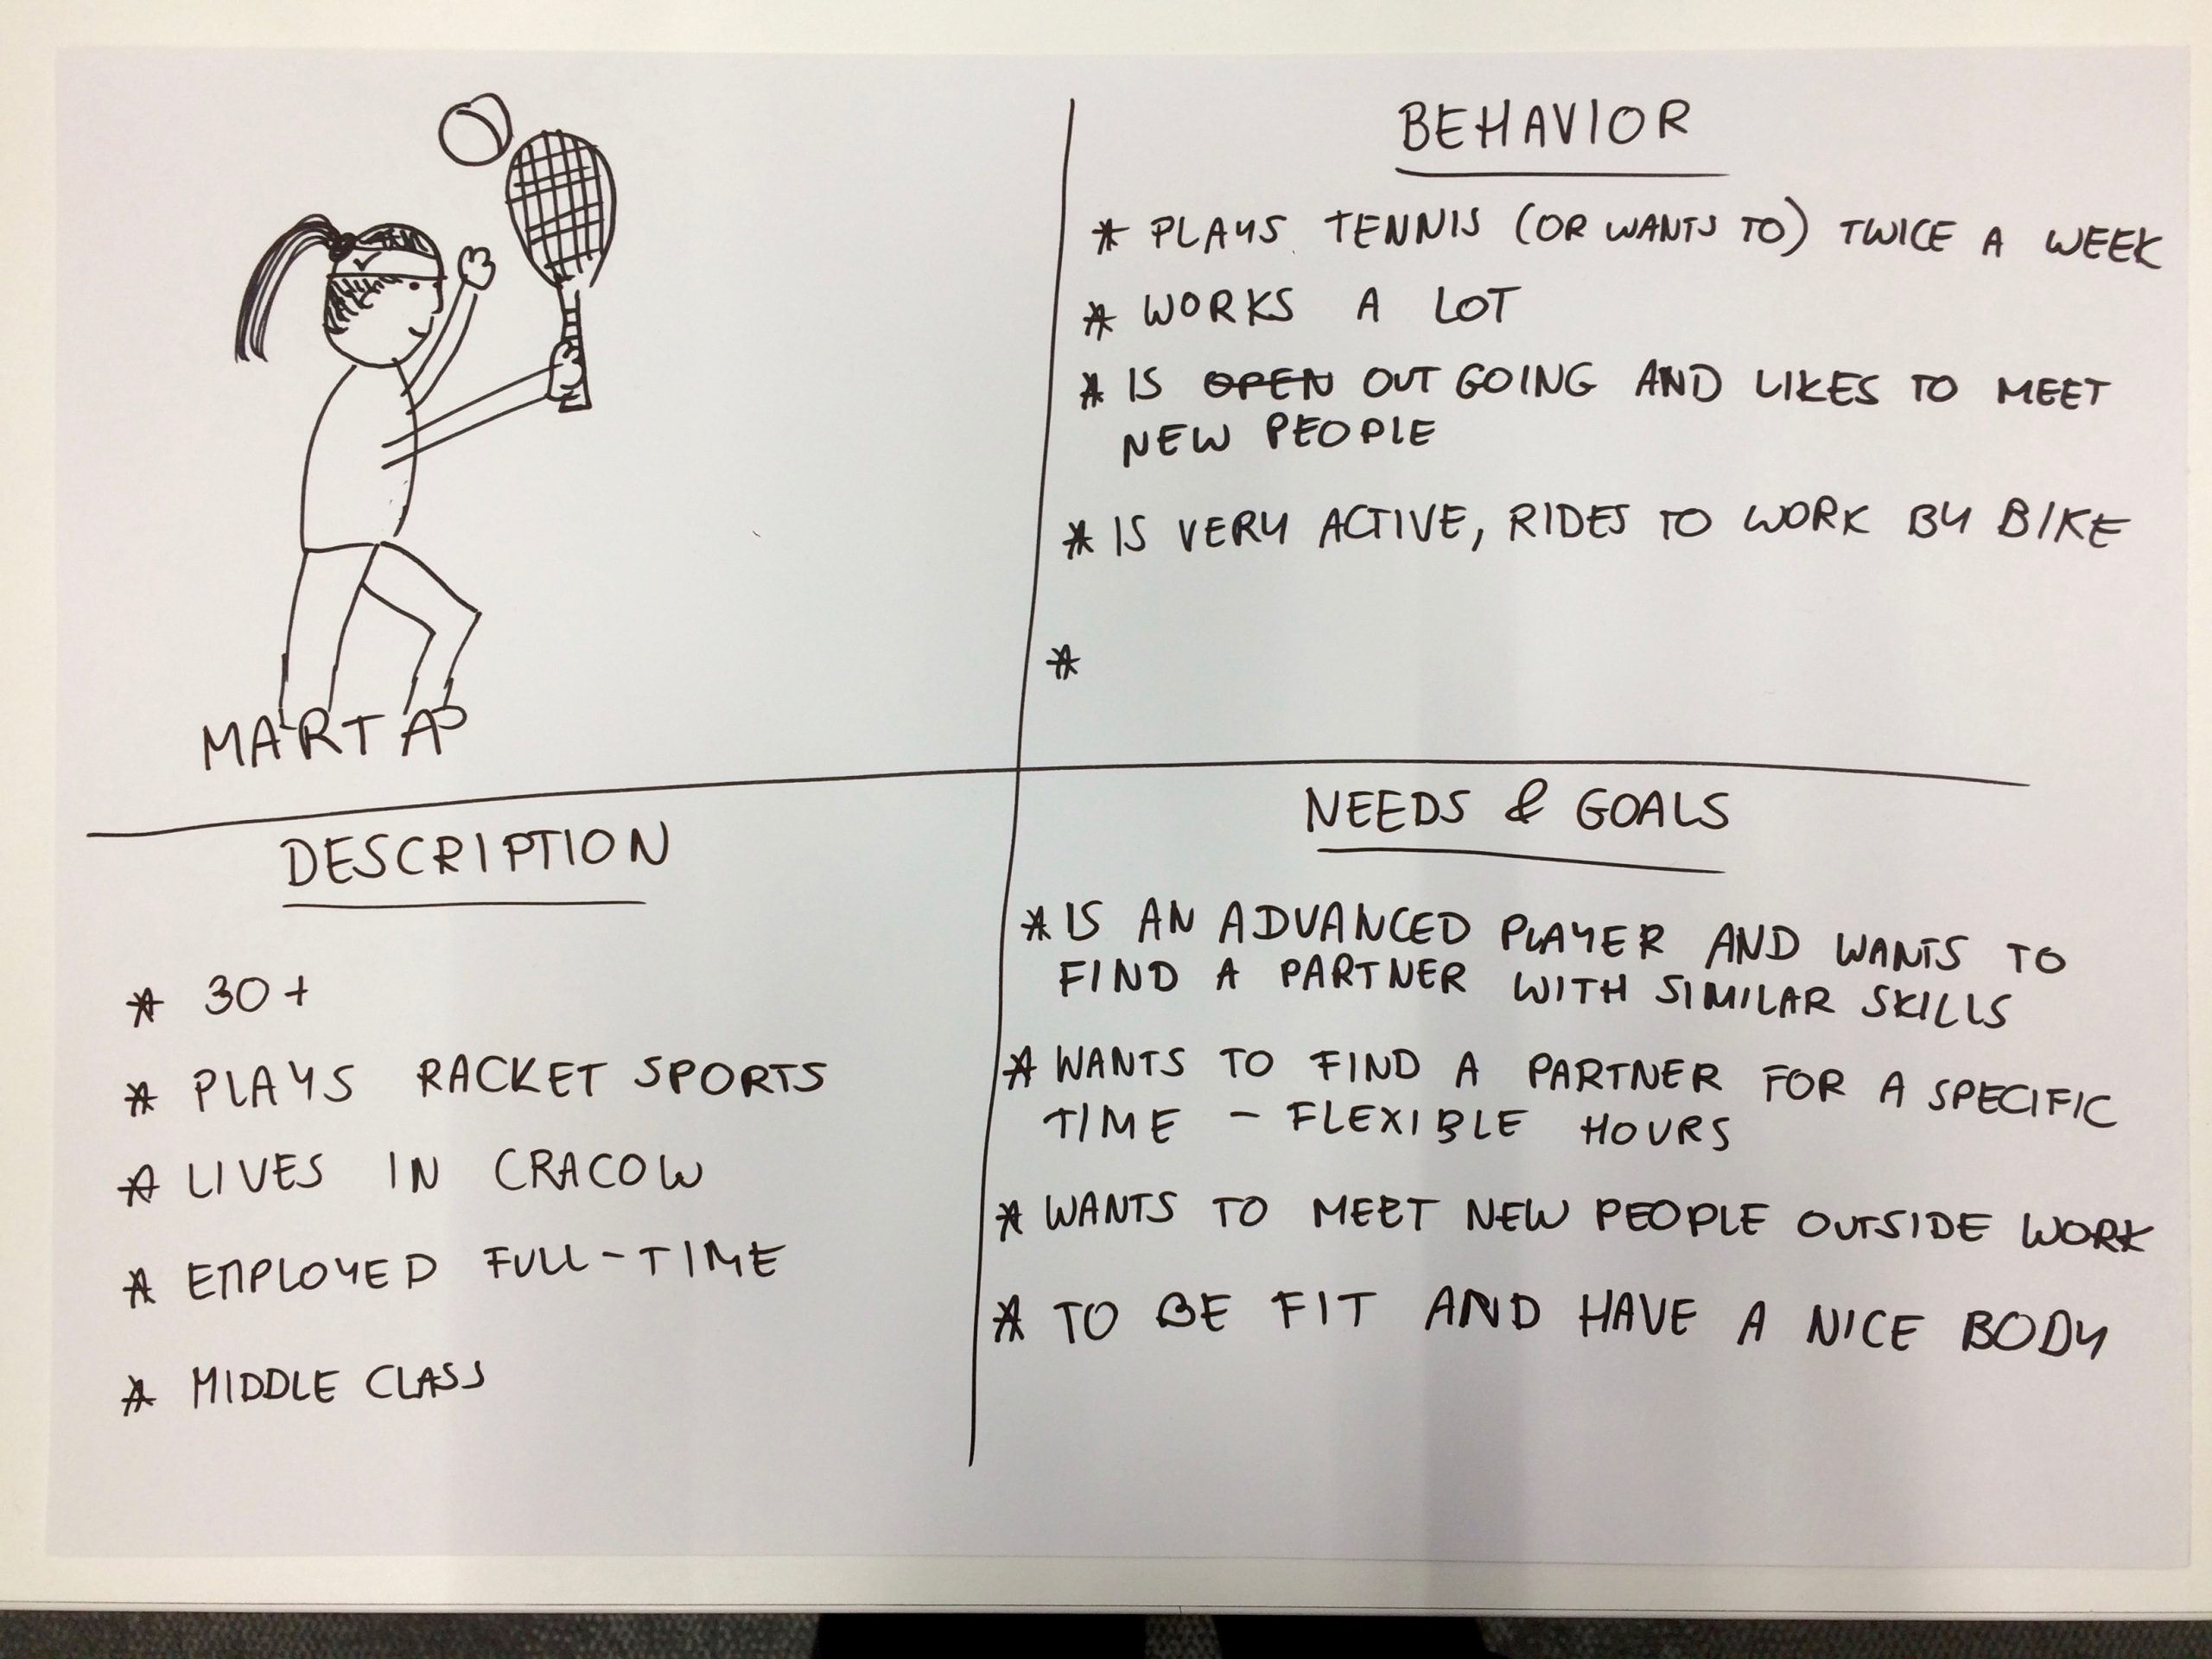 MARTA
BEHAVIOR
* PLAYS TENNIS (OR WANTS TO) TWICE A WEEK
* WORKS A LOT
* IS OPEN OUTGOING AND LIKES TO MEET
NEW PEOPLE
* IS VERY ACTIVE, RIDES TO WORK BY BIKE
*
DESCRIPTION
* 30+
* PLAYS RACKET SPORTS
* LIVES IN CRACOW
* EMPLOYED FULL-TIME
* MIDDLE CLASS
NEEDS & GOALS
* IS AN ADVANCED PLAYER AND WANTS TO
FIND A PARTNER WITH SIMILAR SKILLS
* WANTS TO FIND A PARTNER FOR A SPECIFIC
TIME - FLEXIBLE HOURS
* WANTS TO MEET NEW PEOPLE OUTSIDE WORK
* TO BE FIT AND HAVE A NICE BODY